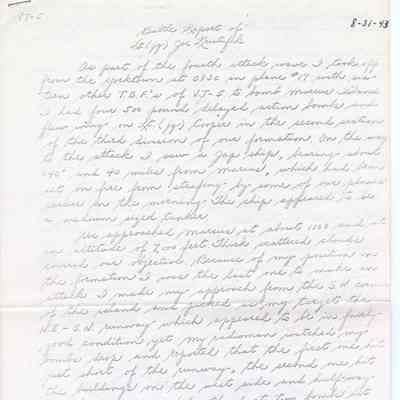 VT-5
8-31-43
Battle Report of
Lt.(jg) Joe Kristufek
As part of the fourth attack wave I took off
from the Yorktown at 0830 in plane #17 with six-
teen other T.B.F.'s of V.T-5 to bomb Marcus Island.
I had four 500 pound delayed action bombs and
flew wing on Lt.(jg) Cooper in the second section
of the third division of our formation. On the way
to the attack I saw a Jap ship, bearing about
and 40 miles from Marcus, which had been
set on fire from strafing by some of our planes
earlier in the morning. The ship appeared to be
a medium sized tanker.
We approached Marcus at about 1000 and at
an altitude of feet. Thick scattered clouds
covered our objective. Because of my position in
the formation I was the last one to make an
attack. I made my approach from the S.W. corner
of the island and picked as my target the
N.E.-S.W. runway which appeared to be in fairly
good condition yet. My radioman watched my
bombs drop and reported that the first one hit
just short of the runway, the second one hit
the buildings on the west side and halfway
the last two bombs hit